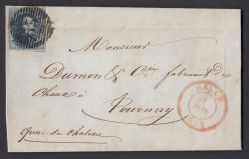 Monsieur
Dumon & Cie fabricant de
Chaux à
Tournay
Quai du château